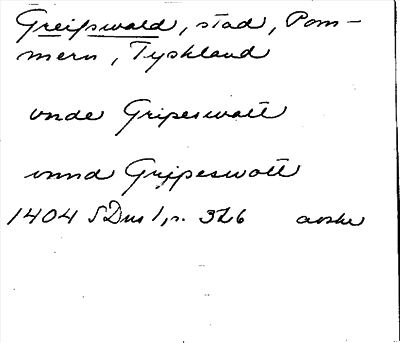 Greifswald, stad, Pom-
mern, Tyskland
vnde Gripeswolt
vnnd Grijpeswolt
1404 SDns 1, s. 326 avskr